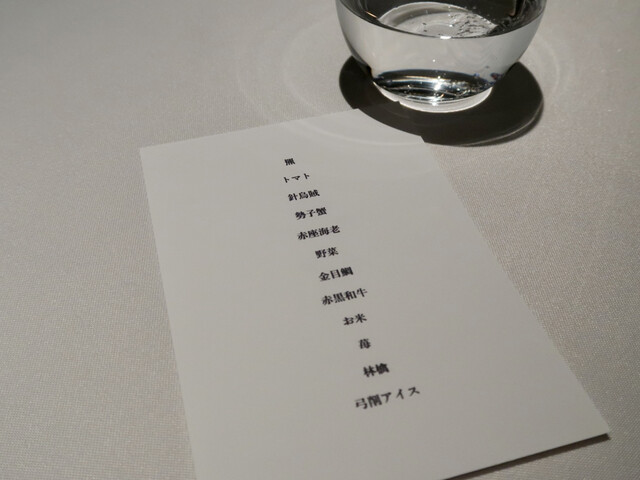 トマト
針烏賊
勢子蟹
赤座海老
野菜
金目鯛
赤黒和牛
お米
苺
林檎
弓削アイス